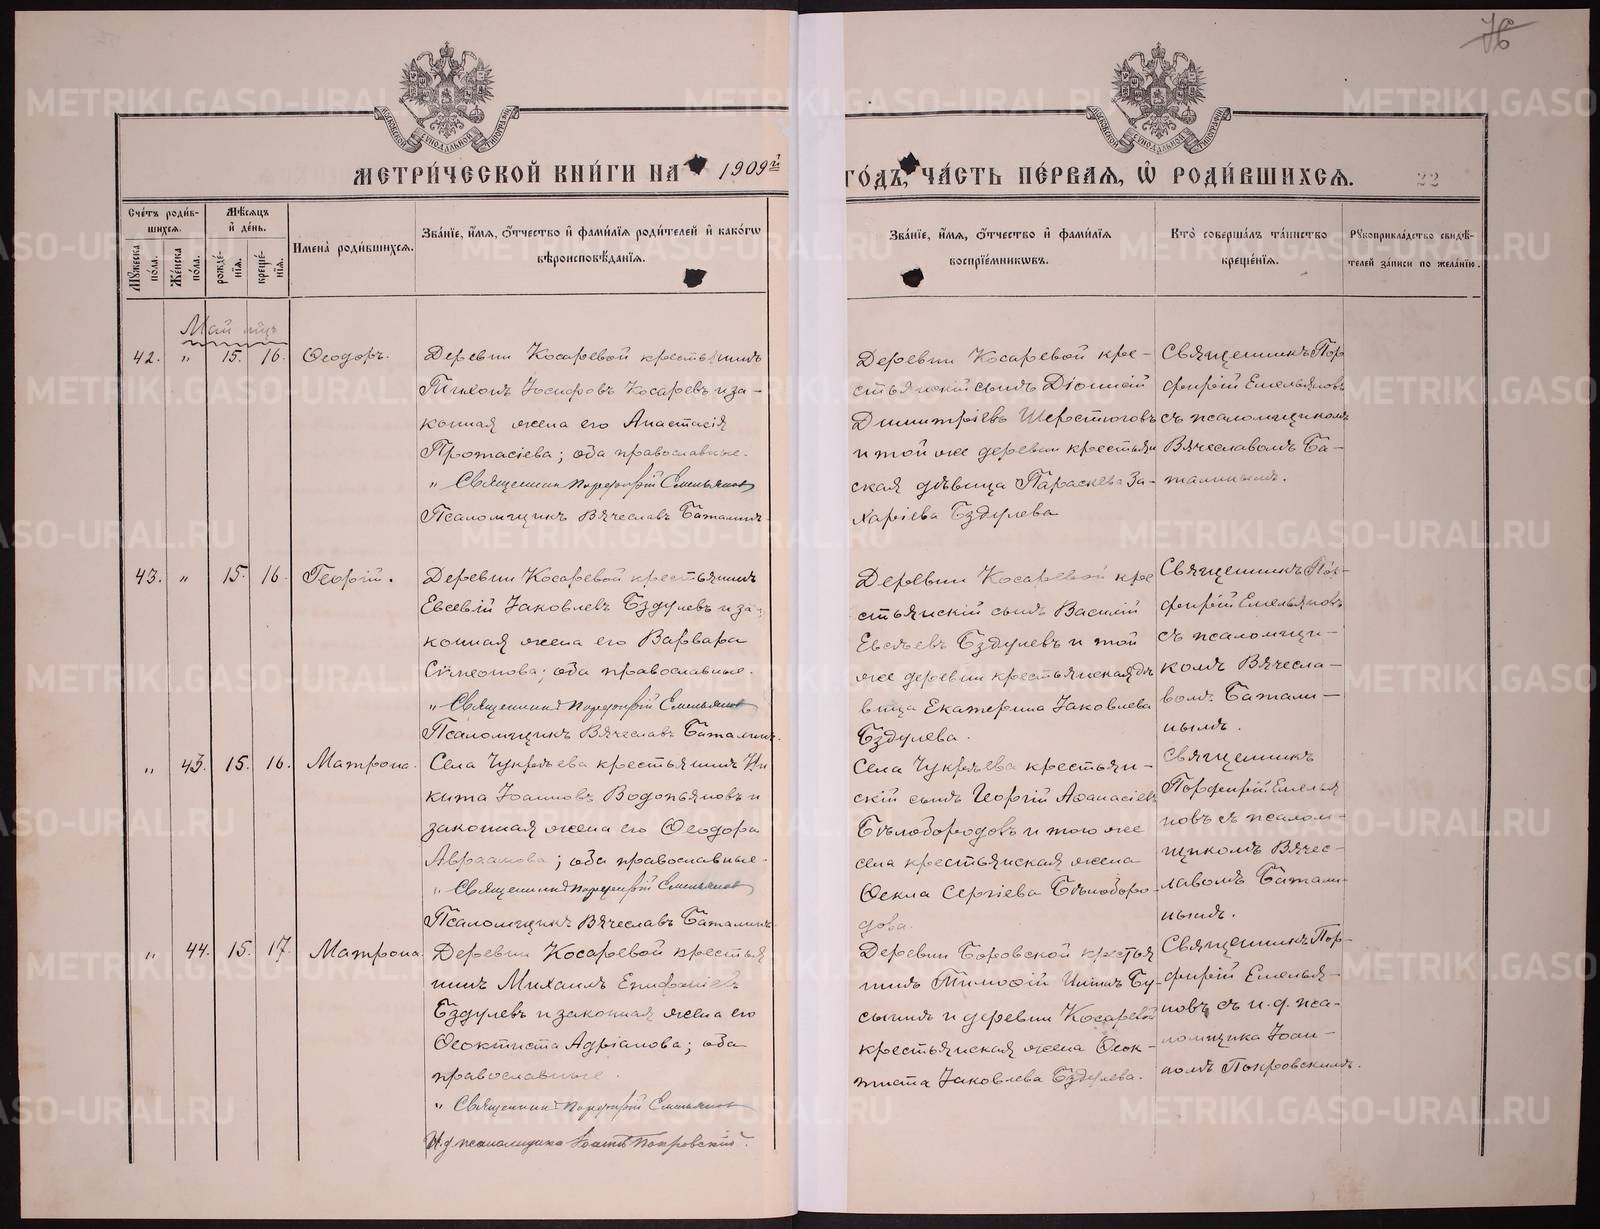 76
МЕТРИ́ЧЕСКОЙ КНИ́ГИ НА 1909й
ГО́ДЪ, ЧА́СТЬ ПЕ́РВАЯ, Ѽ РОДИ́ВШИХСЯ.
22
Сче́тъ роди́в-
шихся.
Мꙋжеска по́ла.
Же́нска по́ла.
Мѣ́сяцъ
и҆ де́нь.
рожде́-
нїя.
креще́-
нїя.
Имена̀ роди́вшихся.
Зва́нїе, и҆́мя, ѻ҆́тчество и҆ фами́лїя роди́телей и҆ како́гѡ
вѣроисповѣ́данїя.
Зва́нїе, и҆́мя, ѻ҆́тчество и҆ фами́лїя
воспрїе́мниковъ.
Кто̀ соверша́лъ та́инство
креще́нїя.
Рꙋкоприкла́дство свидѣ́-
телей за́писи по жела́нїю.
Май мѣц
42. " 15. 16. Ѳеодоръ.
Деревни Косаревой крестьянинъ
Тихонъ Іосифовъ Косаревъ и за-
конная жена его Анастасія
Протасіева; оба православные.
" Священникъ Порфирій Емельяновъ
Псаломщикъ Вячеславъ Баталинъ.
Деревни Косаревой кре-
стьянскій сынъ Діонисій
Димитріевъ Шерстюговъ
и той же деревни крестьян
ская дѣвица Параскева За-
харіева Бздулева
Священникъ Пор
фирій Емельяновъ
съ псаломщикомъ
Вячеславомъ Ба-
талинымъ.
43. " 15. 16. Георгій.
Деревни Косаревой крестьянинъ
Евсевій Іаковлевъ Бздулевъ и за-
конная жена его Варвара
Сѵмеонова; оба православные.
" Священникъ Порфирій Емельяновъ
Псаломщикъ Вячеславъ Баталинъ.
Деревни Косаревой кре
стьянскій сынъ Василій
Евсѣевъ Бздулевъ и той
же деревни крестьянская дѣ
вица Екатерина Іаковлева
Бздулева.
Священникъ Пор-
фирій Емельяновъ
съ псаломщи-
комъ Вячесла-
вомъ Батали-
нымъ.
" 43. 15. 16. Матрона.
Села Чукреева крестьянинъ Ни
кита Іоанновъ Водопьяновъ и
законная жена его Ѳеодора
Авраамова; оба православные.
" Священникъ Порфирій Емельяновъ
Псаломщикъ Вячеславъ Баталинъ.
Села Чукреева крестьян-
скій сынъ Георгій Аѳанасіевъ
Бѣлобородовъ и того же
села крестьянская жена
Ѳекла Сергіева Бѣлоборо-
дова.
Священникъ
Порфирій Емелья
новъ съ псалом-
щикомъ Вячес-
лавомъ Батали-
нымъ.
" 44. 15. 17. Матрона.
Деревни Косаревой крестья
нинъ Михаилъ Епифаніевъ
Бздулевъ и законная жена его
Ѳеоктиста Адріанова; оба
православные.
" Священникъ Порфирій Емельяновъ
И.д. псаломщика Іоаннъ Покровскій.
Деревни Боровской крестья
нинъ Тимоѳій
сынинъ и деревни Косаревой
крестьянская жена Ѳеок-
тиста Іаковлева Бздулева.
Священникъ Пор-
фирій Емелья-
новъ съ и.д. пса-
ломщика Іоан-
номъ Покровскимъ.
METRIKI.GASO-URAL.RU